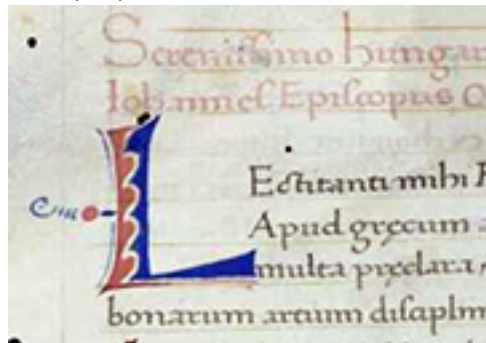 Serenissimo hungar
Iohannes Episcopus
LEctitanti mihi
Apud gręcum
multa pręclara
bonarum artium discipl